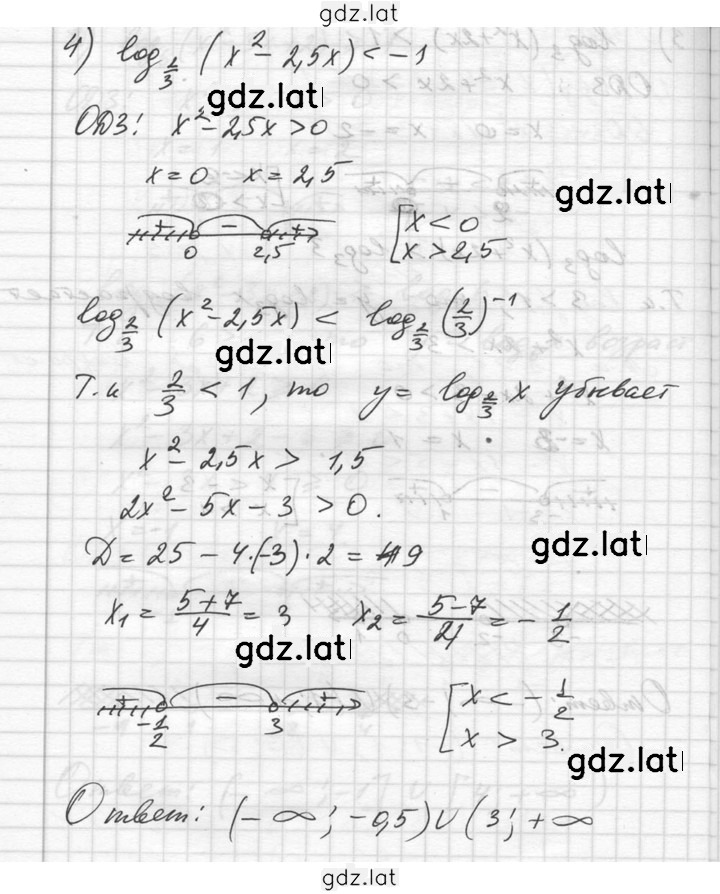 gdz.lat
4) log_{2/3} (x² - 2,5x) < -1
gdz.lat
ОДЗ: x² - 2,5x > 0
x = 0 x = 2,5
gdz.lat
+ - +
0 2,5
[ x < 0
x > 2,5
log_{2/3} (x² - 2,5x) < log_{2/3} (2/3)^{-1}
gdz.lat
Т.к 2/3 < 1, то y = log_{2/3} x убывает
x² - 2,5x > 1,5
2x² - 5x - 3 > 0.
D = 25 - 4·(-3)·2 = 49
gdz.lat
x₁ = (5+7)/4 = 3 x₂ = (5-7)/4 = -1/2
gdz.lat
+ - +
-1/2 3
[ x < -1/2
x > 3.
gdz.lat
Ответ: (-∞; -0,5) ∪ (3; +∞
gdz.lat